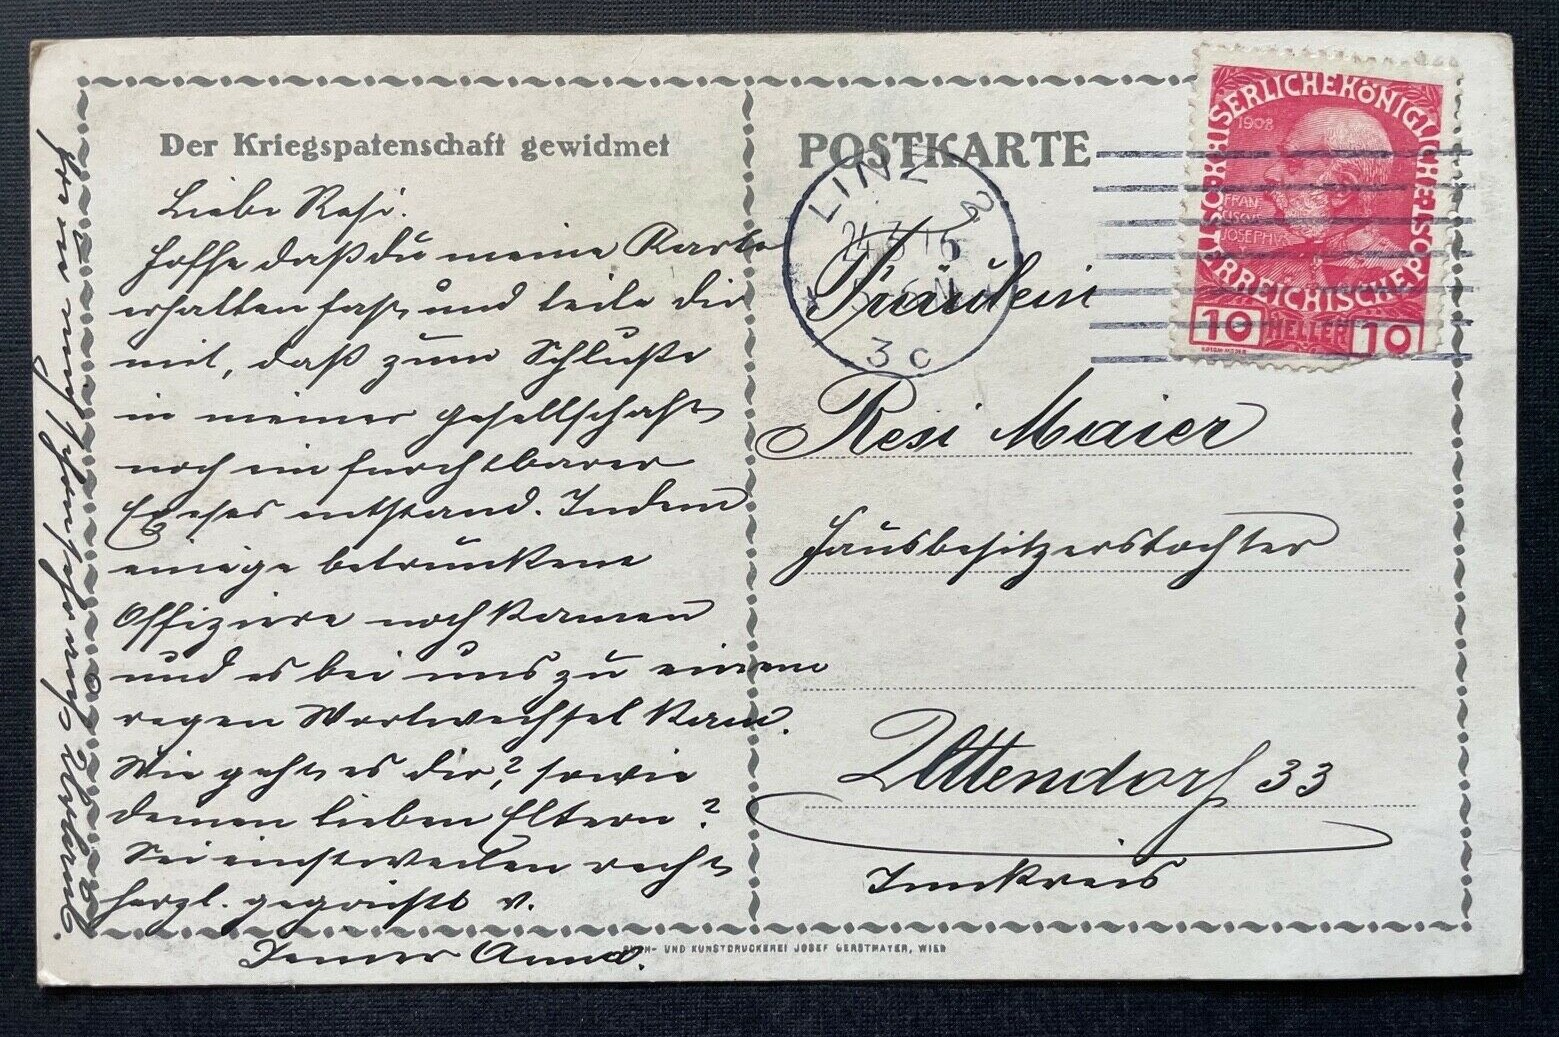 Der Kriegspatenschaft gewidmet
Liebe Resi.
Hoffe daß du meine Karte
erhalten hast, und teile dir
mit, daß zum Schluße
in meiner gesellschaft
noch ein furchtbarer
Exeses entstand. Indem
einige betrunkene
Offiziere noch kamen
und es bei uns zu einem
regen Wortwechsel kam.
Wie geht es dir? sowie
deinen lieben Eltern?
Sei einstweilen recht
herzl. gegrüßt v.
Anna.
POSTKARTE
LINZ 2
3c
Fräulein
Resi Maier
Hausbesitzerstochter
Uttendorf 33
Innkreis
KAISERLICHE KÖNIGLICHE ÖSTERREICHISCHE POST
1908
FRAN
CISCVS
IOSEPHVS
10 HELLER 10
BUCH- UND KUNSTDRUCKEREI JOSEF GERSTMAYER, WIEN